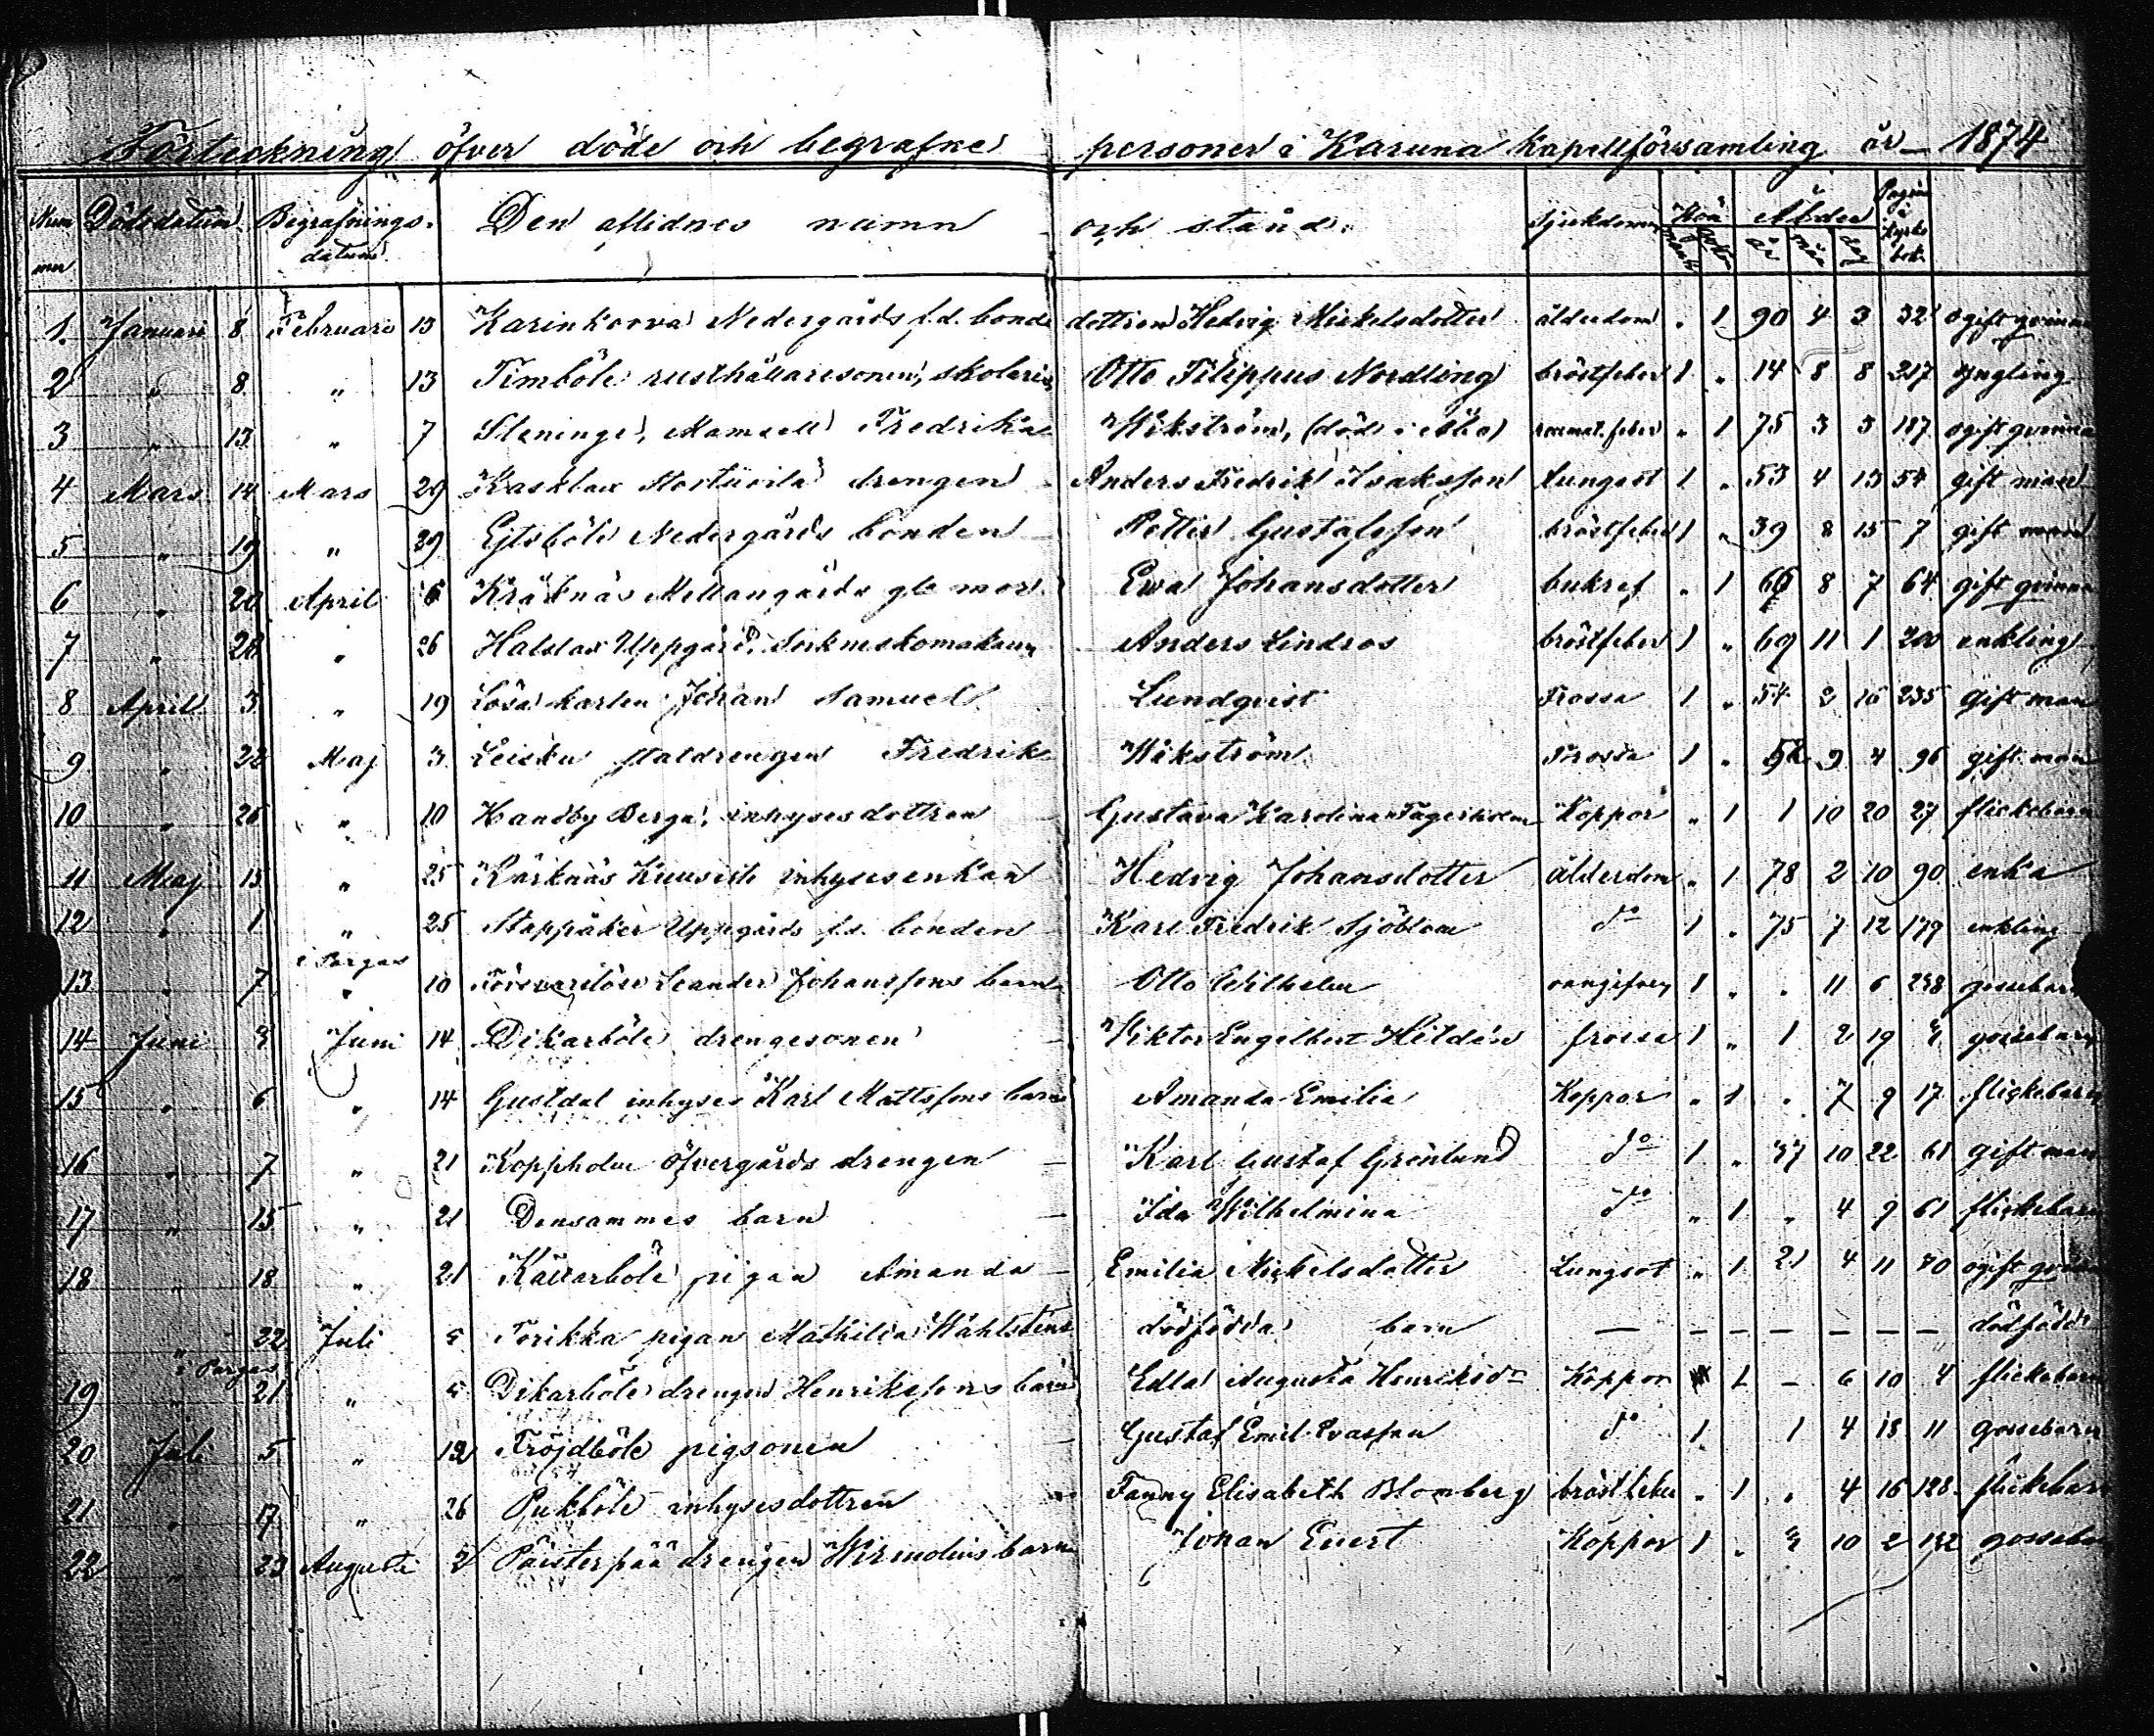 Förteckning öfver döde och begrafne personer i Karuna Kapellförsamling år 1874
Nummer Dödsdatum Begrafningsdatum Den aflidnes namn och stånd. Sjukdom Kön mank. qvk. Ålder år mån dag Pagina i kyrkobok.
1. Januari 8 Februari 13 Karinkorva Nedergårds f.d. bonde dottren Hedvig Mickelsdotter ålderdom " 1 90 4 3 32 ogift qvinna
2 " 8 " 13 Timböle rusthållaresonen, Otto Filippus Nordling bröstfeber 1 " 14 8 8 217 yngling
3 " 13 " 7 Steninge, Mamsell Fredrika Wikström, (död i Åbo) reumat. feber " 1 75 3 3 187 ogift qvinna
4 Mars 14 Mars 29 Kasklax drengen Anders Fredrik Isaksson Lungsot 1 " 53 4 13 54 gift man
5 " 19 " 29 Nedergårds bonden Petter Gustafsson bröstfeber 1 " 39 8 15 7 gift man
6 " 20 April 6 Kräknäs Mellangårds gla mor Eva Johansdotter bukref " 1 66 8 7 64 gift qvinna
7 " 28 " 26 Uppgård Sockneskomakaren Anders Lindros bröstfeber 1 " 69 11 1 200 enkling
8 April 3 " 19 Lösa karlen Johan Samuel Lundqvist Frossa 1 " 54 2 16 235 gift man
9 " 22 Maj 3 statdrengen Fredrik Wikström Frossa 1 " 9 4 96 gift man
10 " 26 " 10 Handby Berga, inhysesdottren Gustava Karolina Fagerholm Koppor " 1 1 10 20 27 flickebarn
11 Maj 15 " 25 Kärknäs Kuusisto inhysesenkan Hedvig Johansdotter ålderdom " 1 78 2 10 90 enka
12 " 1 " 25 Stappåker Uppgårds f.d. bonden Karl Fredrik Sjöblom do 1 " 75 7 12 179 enkling
13 " 7 i Pargas " 10 Försvarslöse Leander Johanssons barn Otto Wilhelm oangifven 1 " " 11 6 238 gossebarn
14 Juni 3 Juni 14 Dikarböle drengesonen Viktor Engelbert Hildén frossa 1 " 1 2 19 gossebarn
15 " 6 " 14 Gustdal inhyses Karl Mattssons barn Amanda Emilia Koppor " 1 " 7 9 17 flickebarn
16 " 7 " 21 Koppholm Öfvergårds drengen Karl Gustaf Grönlund do 1 " 37 10 22 61 gift man
17 " 15 " 21 Densammes barn Ida Wilhelmina do " 1 " 4 9 61 flickebarn
18 " 18 " 21 Källarböle pigan Amanda Emilia Mickelsdotter Lungsot " 1 21 4 11 70 ogift qvinna
" 22 Juli 5 Torikka pigan Mathilda Wahlstens dödfödda barn — — — — — — — dödfödd
19 i Pargas " 21 " 5 Dikarböle drengen Henrikssons barn Edla Augusta Henriksdr Koppor 1 — 6 10 4 flickebarn
20 Juli 5 " 12 Fröjdböle pigsonen Gustaf Emil Evasson do 1 1 4 18 11 gossebarn
21 " 17 " 26 Pukböle inhysesdottren Fanny Elisabeth Blomberg bröstfeber " 1 " 4 16 128 flickebarn
22 " 23 Augusti 2 Päisterpää drengen barn Johan Evert Koppor 1 " 3 10 2 132 gossebarn